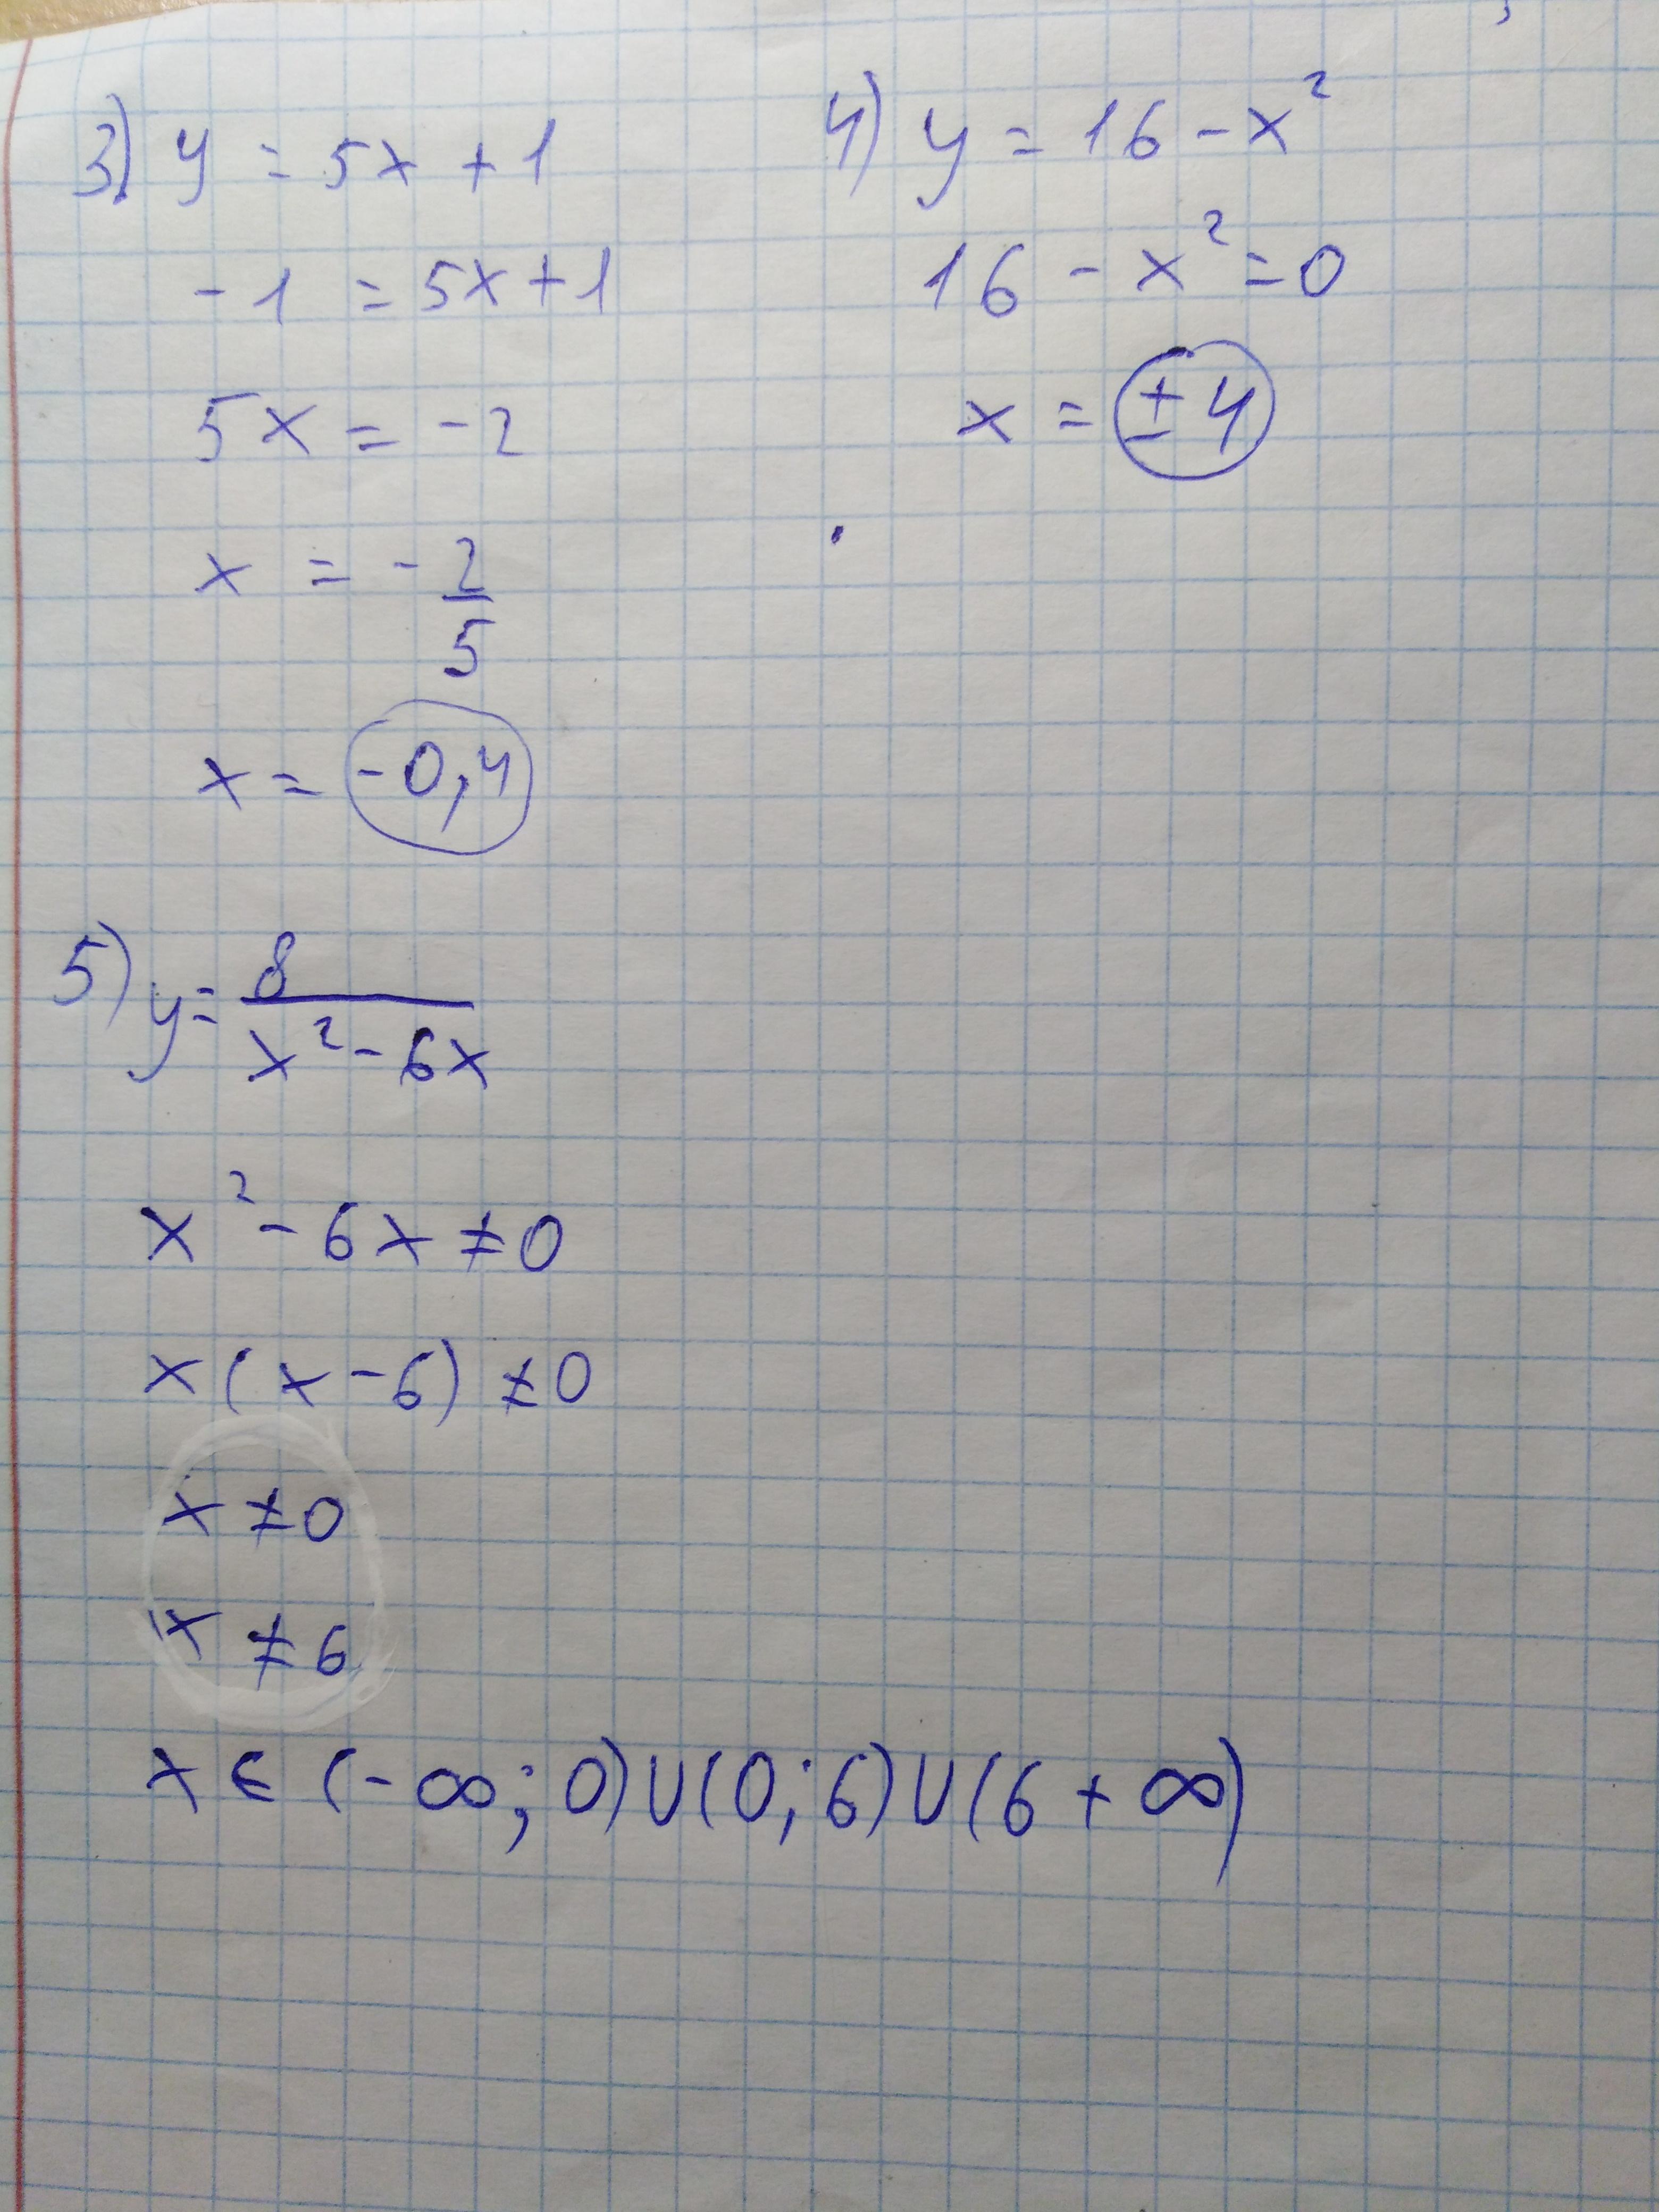 3) y = 5x + 1
-1 = 5x + 1
5x = -2
x = -2/5
x = -0,4
4) y = 16 - x²
16 - x² = 0
x = ±4
5) y = 8/(x² - 6x)
x² - 6x ≠ 0
x(x - 6) ≠ 0
x ≠ 0
x ≠ 6
x ∈ (-∞; 0) ∪ (0; 6) ∪ (6 + ∞)